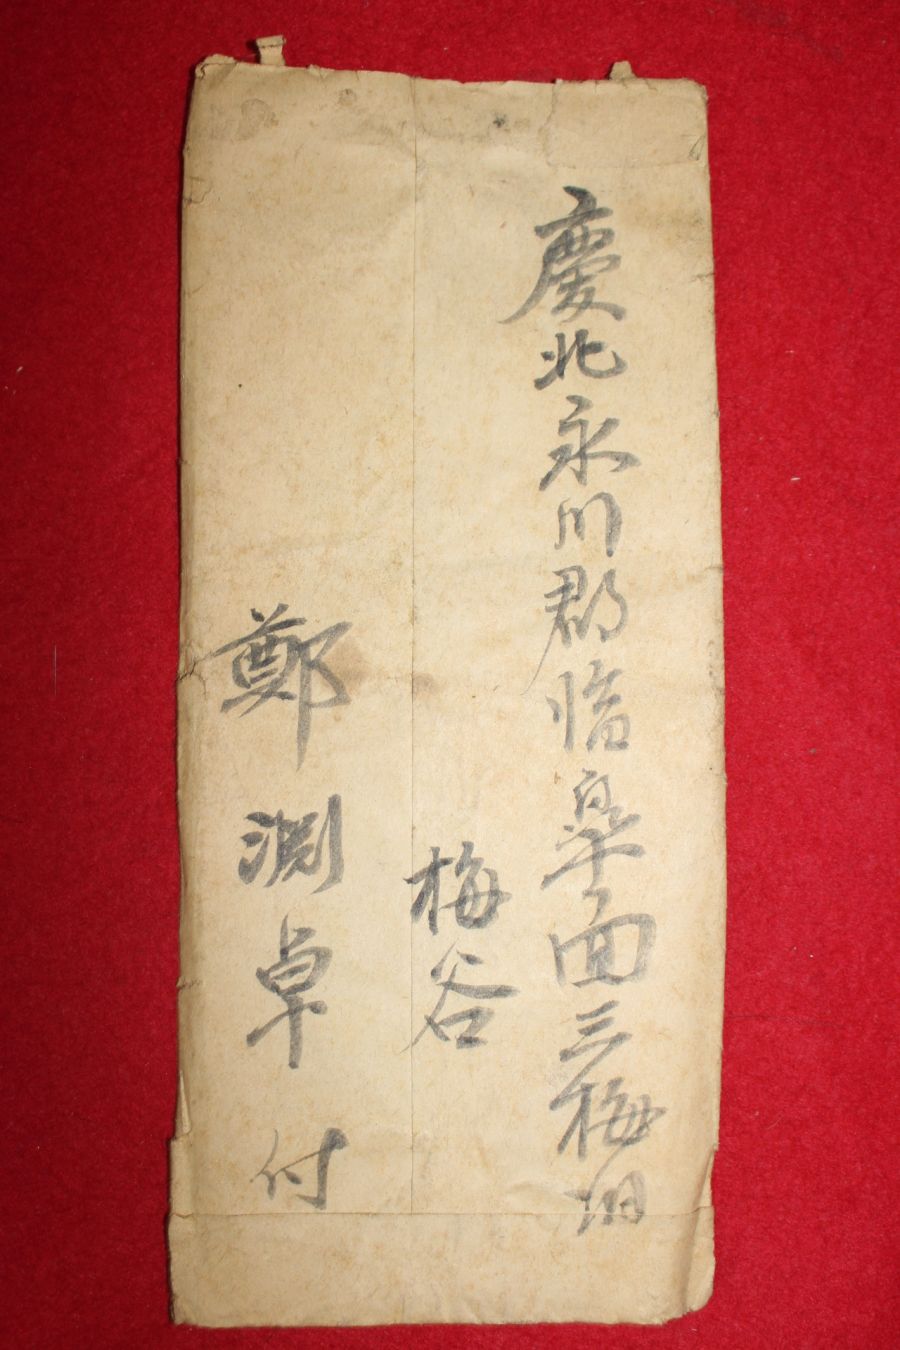 慶北永川郡臨皐面三梅洞
梅谷
鄭淵卓付